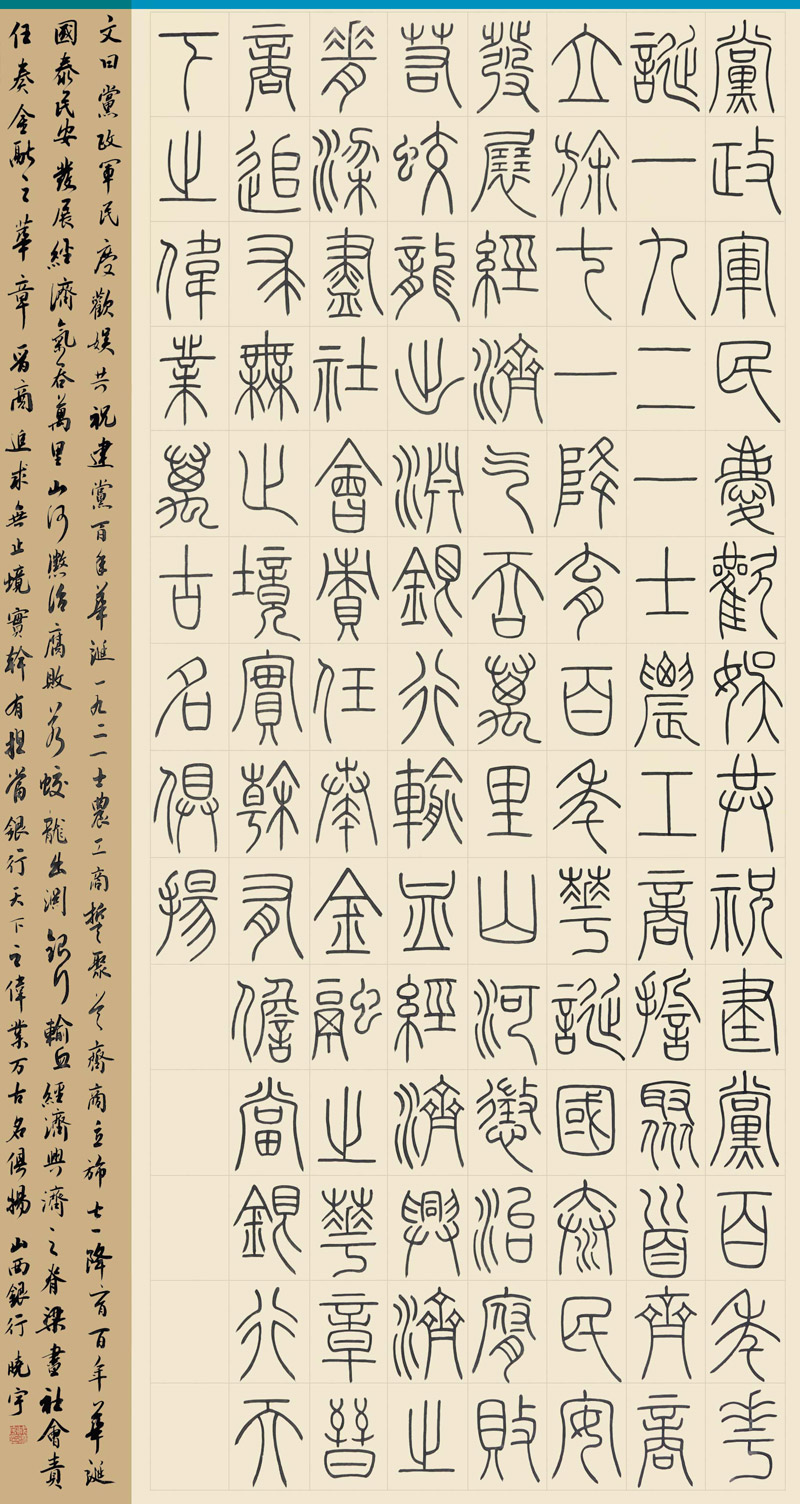 黨政軍民慶歡娛共祝建黨百年華
誕一九二一士農工商誓聚首齊商
立施七一降育百年華誕國泰民安
發展經濟氣吞萬里山河懲治腐敗
若蛟龍出淵銀行輸血經濟興濟之
脊梁盡社會責任奏金融之華章晉
商追求無止境實幹有擔當銀行天
下之偉業萬古名俱揚
文曰黨政軍民慶歡娛共祝建黨百年華誕一九二一士農工商誓聚首齊商立施七一降育百年華誕
國泰民安發展經濟氣吞萬里山河懲治腐敗若蛟龍出淵銀行輸血經濟興濟之脊梁盡社會責
任奏金融之華章晉商追求無止境實幹有擔當銀行天下之偉業万古名俱揚山西銀行曉宇